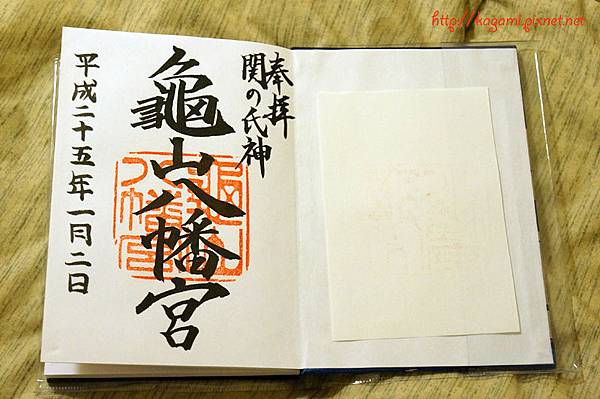 http://kagami.pixnet.net
奉拝
関の氏神
龜山八幡宮
平成二十五年一月二日